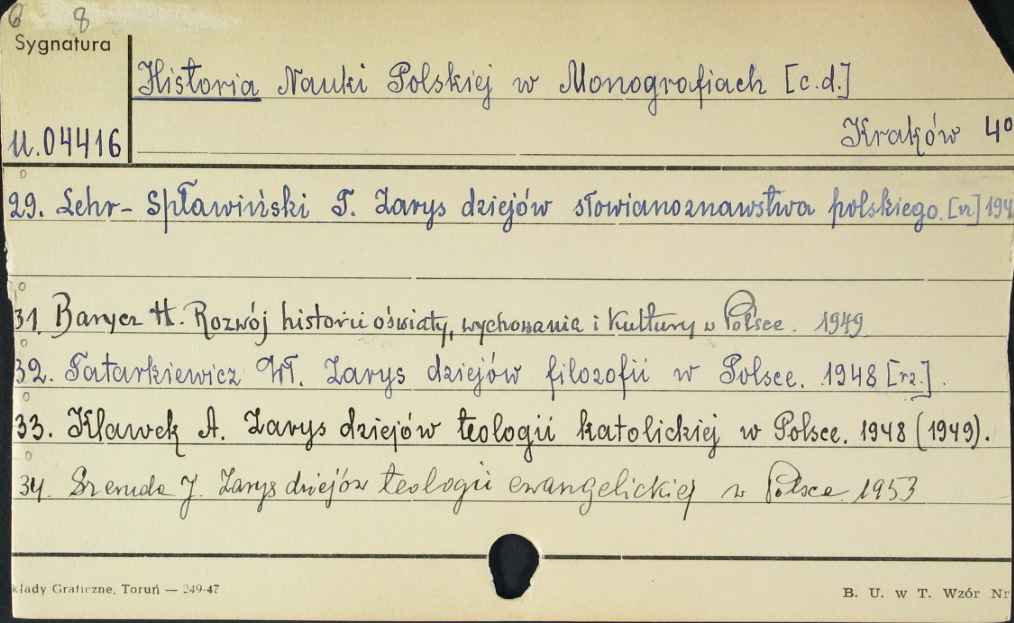 6 8
Sygnatura
Historia Nauki Polskiej w Monografiach [c.d.]
Kraków 4°
U.04416
29. Lehr-Spławiński T. Zarys dziejów słowianoznawstwa polskiego. [rz] 194
31. Barycz H. Rozwój historii oświaty, wychowania i kultury w Polsce. 1949
32. Tatarkiewicz Wł. Zarys dziejów filozofii w Polsce. 1948 [rz.].
33. Kławek A. Zarys dziejów teologii katolickiej w Polsce. 1948 (1949).
34. Szeruda J. Zarys dziejów teologii ewangelickiej w Polsce. 1953
kłady Graficzne, Toruń — 249-47
B. U. w T. Wzór Nr